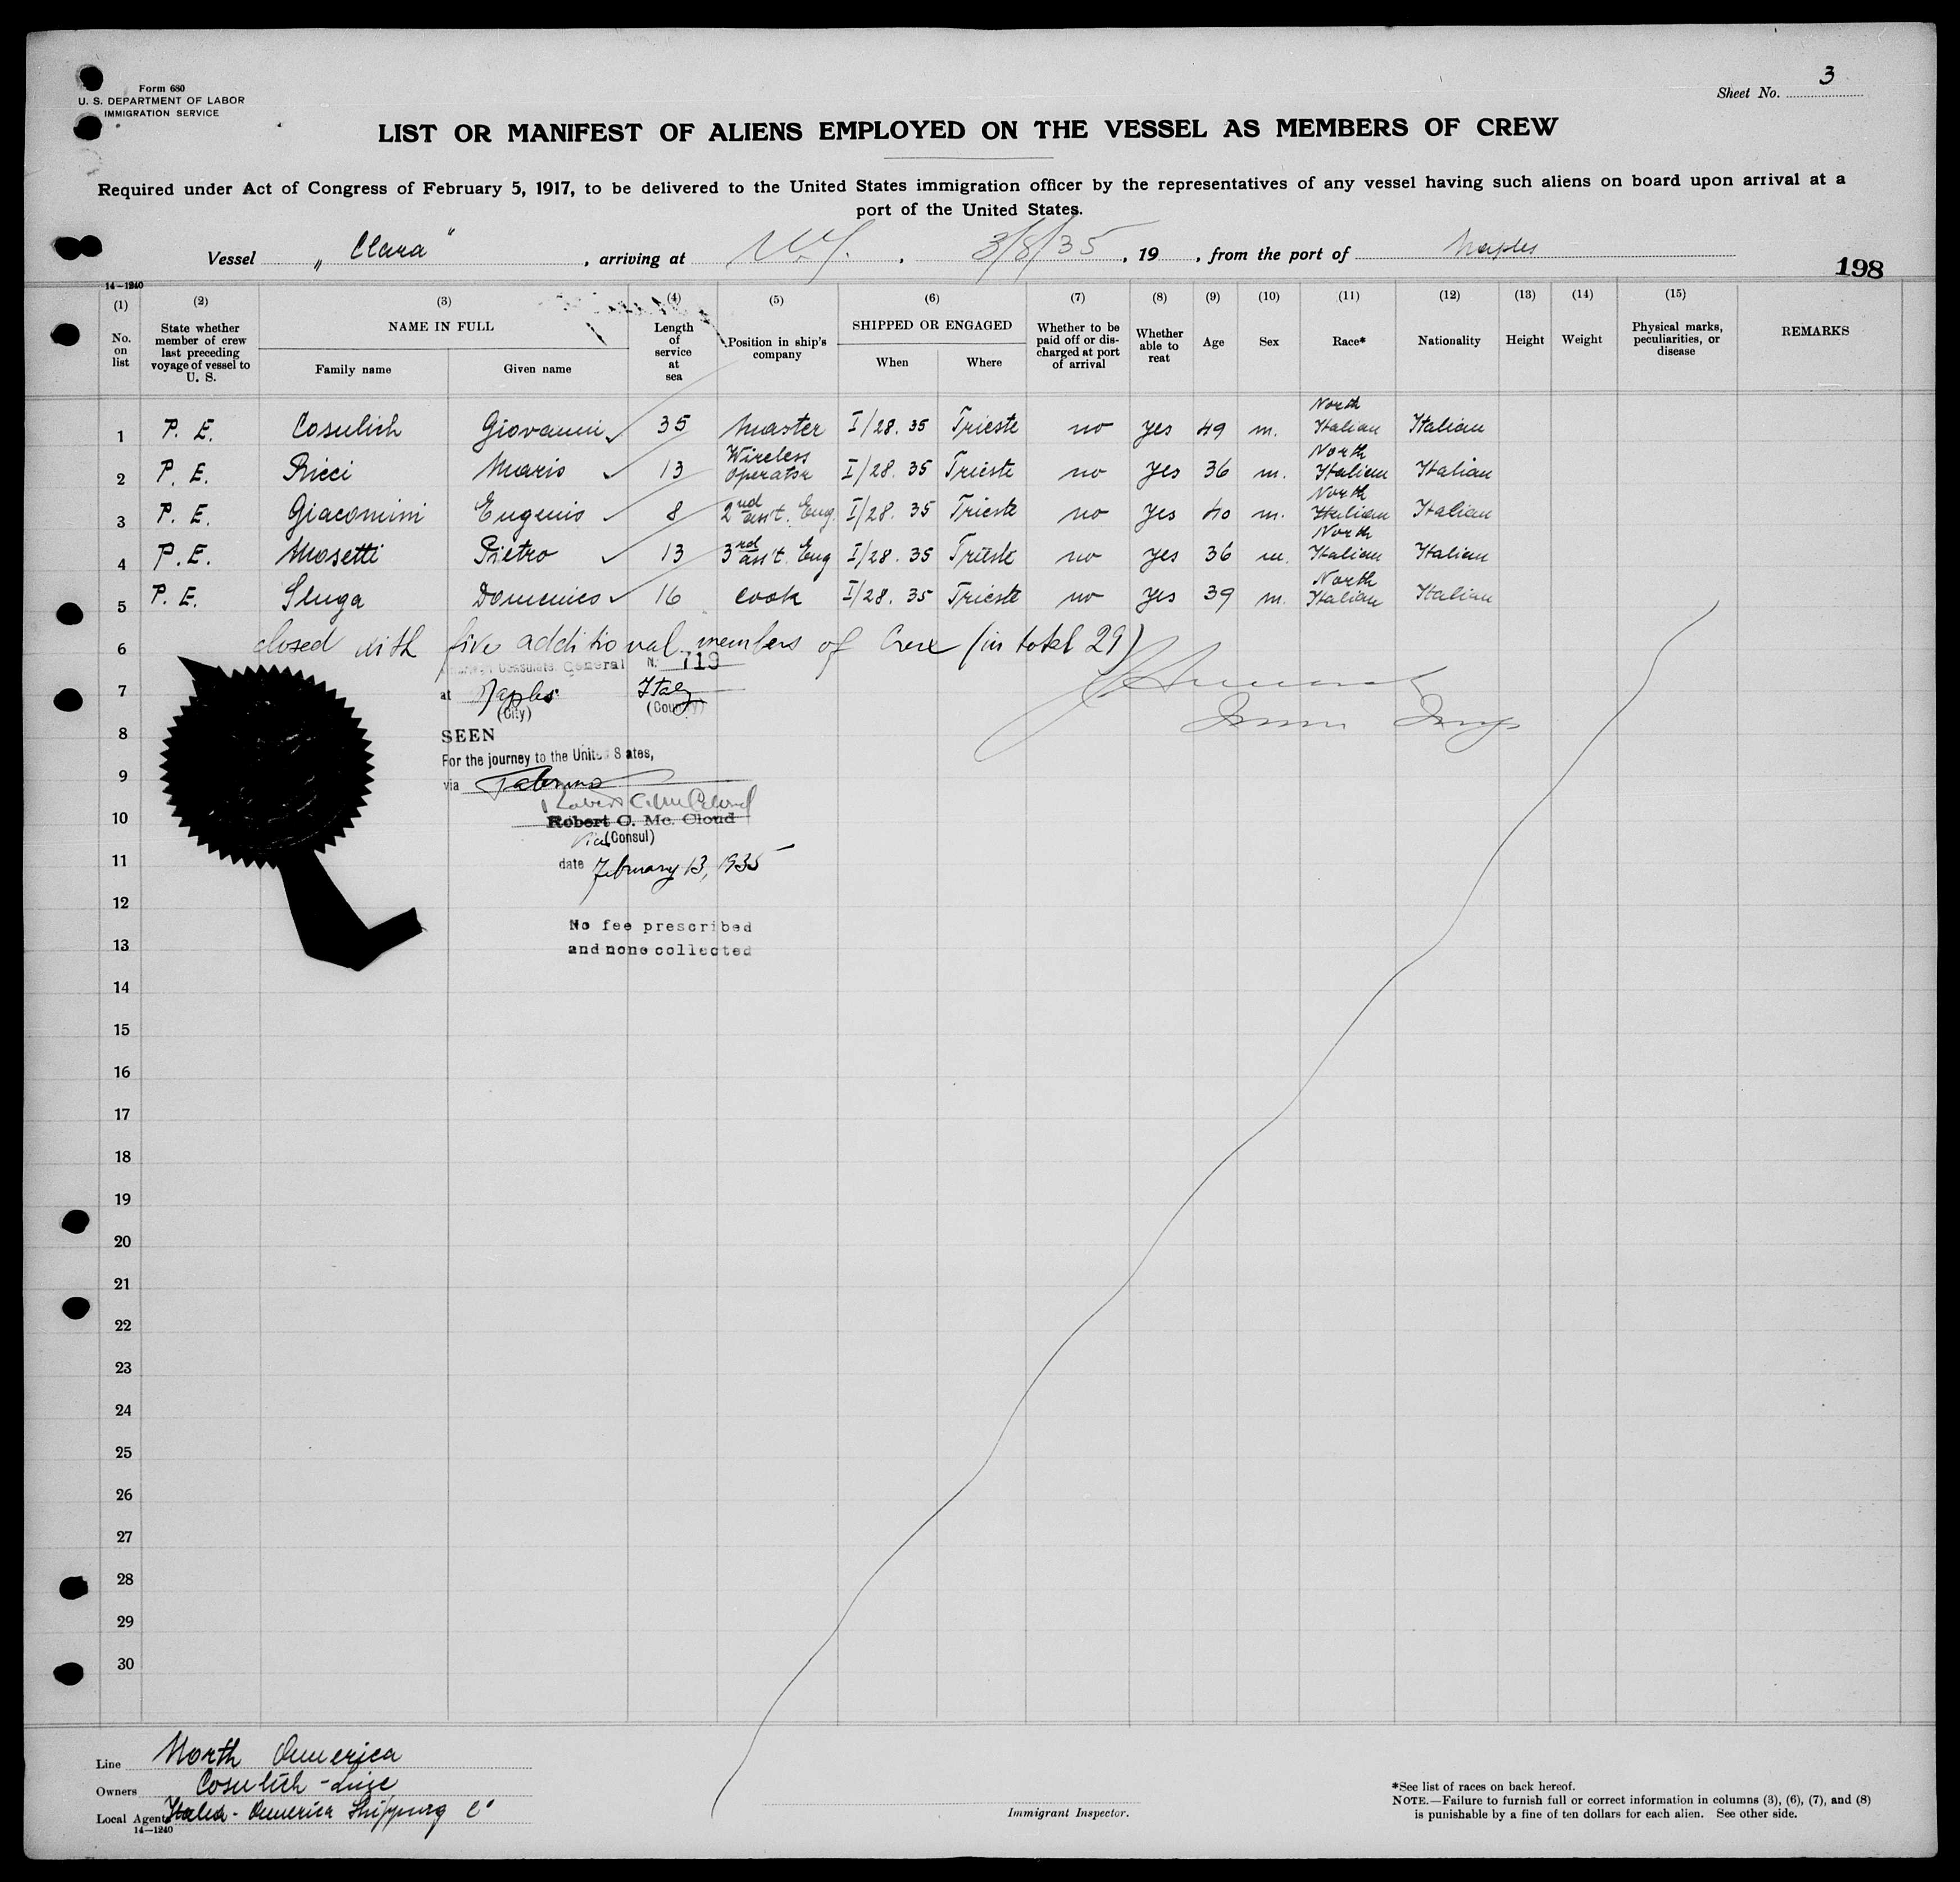 Form 680
U. S. DEPARTMENT OF LABOR
IMMIGRATION SERVICE
Sheet No. 3
LIST OR MANIFEST OF ALIENS EMPLOYED ON THE VESSEL AS MEMBERS OF CREW
Required under Act of Congress of February 5, 1917, to be delivered to the United States immigration officer by the representatives of any vessel having such aliens on board upon arrival at a
port of the United States.
Vessel „Clara“, arriving at N.Y., 3/8/35, 19, from the port of Naples
198
14—1240
(1) (2) (3) (4) (5) (6) (7) (8) (9) (10) (11) (12) (13) (14) (15)
No. on list
State whether member of crew last preceding voyage of vessel to U. S.
NAME IN FULL
Family name Given name
Length of service at sea
Position in ship's company
SHIPPED OR ENGAGED
When Where
Whether to be paid off or discharged at port of arrival
Whether able to reat
Age
Sex
Race*
Nationality
Height
Weight
Physical marks, peculiarities, or disease
REMARKS
1 P. E. Cosulich Giovanni 35 Master I/28. 35 Trieste no yes 49 m. North Italian Italian
2 P. E. Ricci Mario 13 Wireless Operator I/28. 35 Trieste no yes 36 m. North Italian Italian
3 P. E. Giacomini Eugenio 8 2nd ass't. Eng. I/28. 35 Trieste no yes 40 m. North Italian Italian
4 P. E. Mosetti Pietro 13 3rd ass't. Eng I/28. 35 Trieste no yes 36 m. North Italian Italian
5 P. E. Sluga Domenico 16 cook I/28. 35 Trieste no yes 39 m. North Italian Italian
6 closed with five additional members of Crew (in total 29)
Consulate General No. 719
7 at Naples Italy
(City) (Country)
8 SEEN
For the journey to the United States,
9 via Palermo
10 Robert C. Mc. Cloud
Vice (Consul)
11 date February 13, 1935
12
No fee prescribed
13 and none collected
14
15
16
17
18
19
20
21
22
23
24
25
26
27
28
29
30
Line North America
Owners Cosulich-Line
Local Agents Italia-America Shipping Co
14—1240
Immigrant Inspector.
*See list of races on back hereof.
NOTE.—Failure to furnish full or correct information in columns (3), (6), (7), and (8)
is punishable by a fine of ten dollars for each alien. See other side.